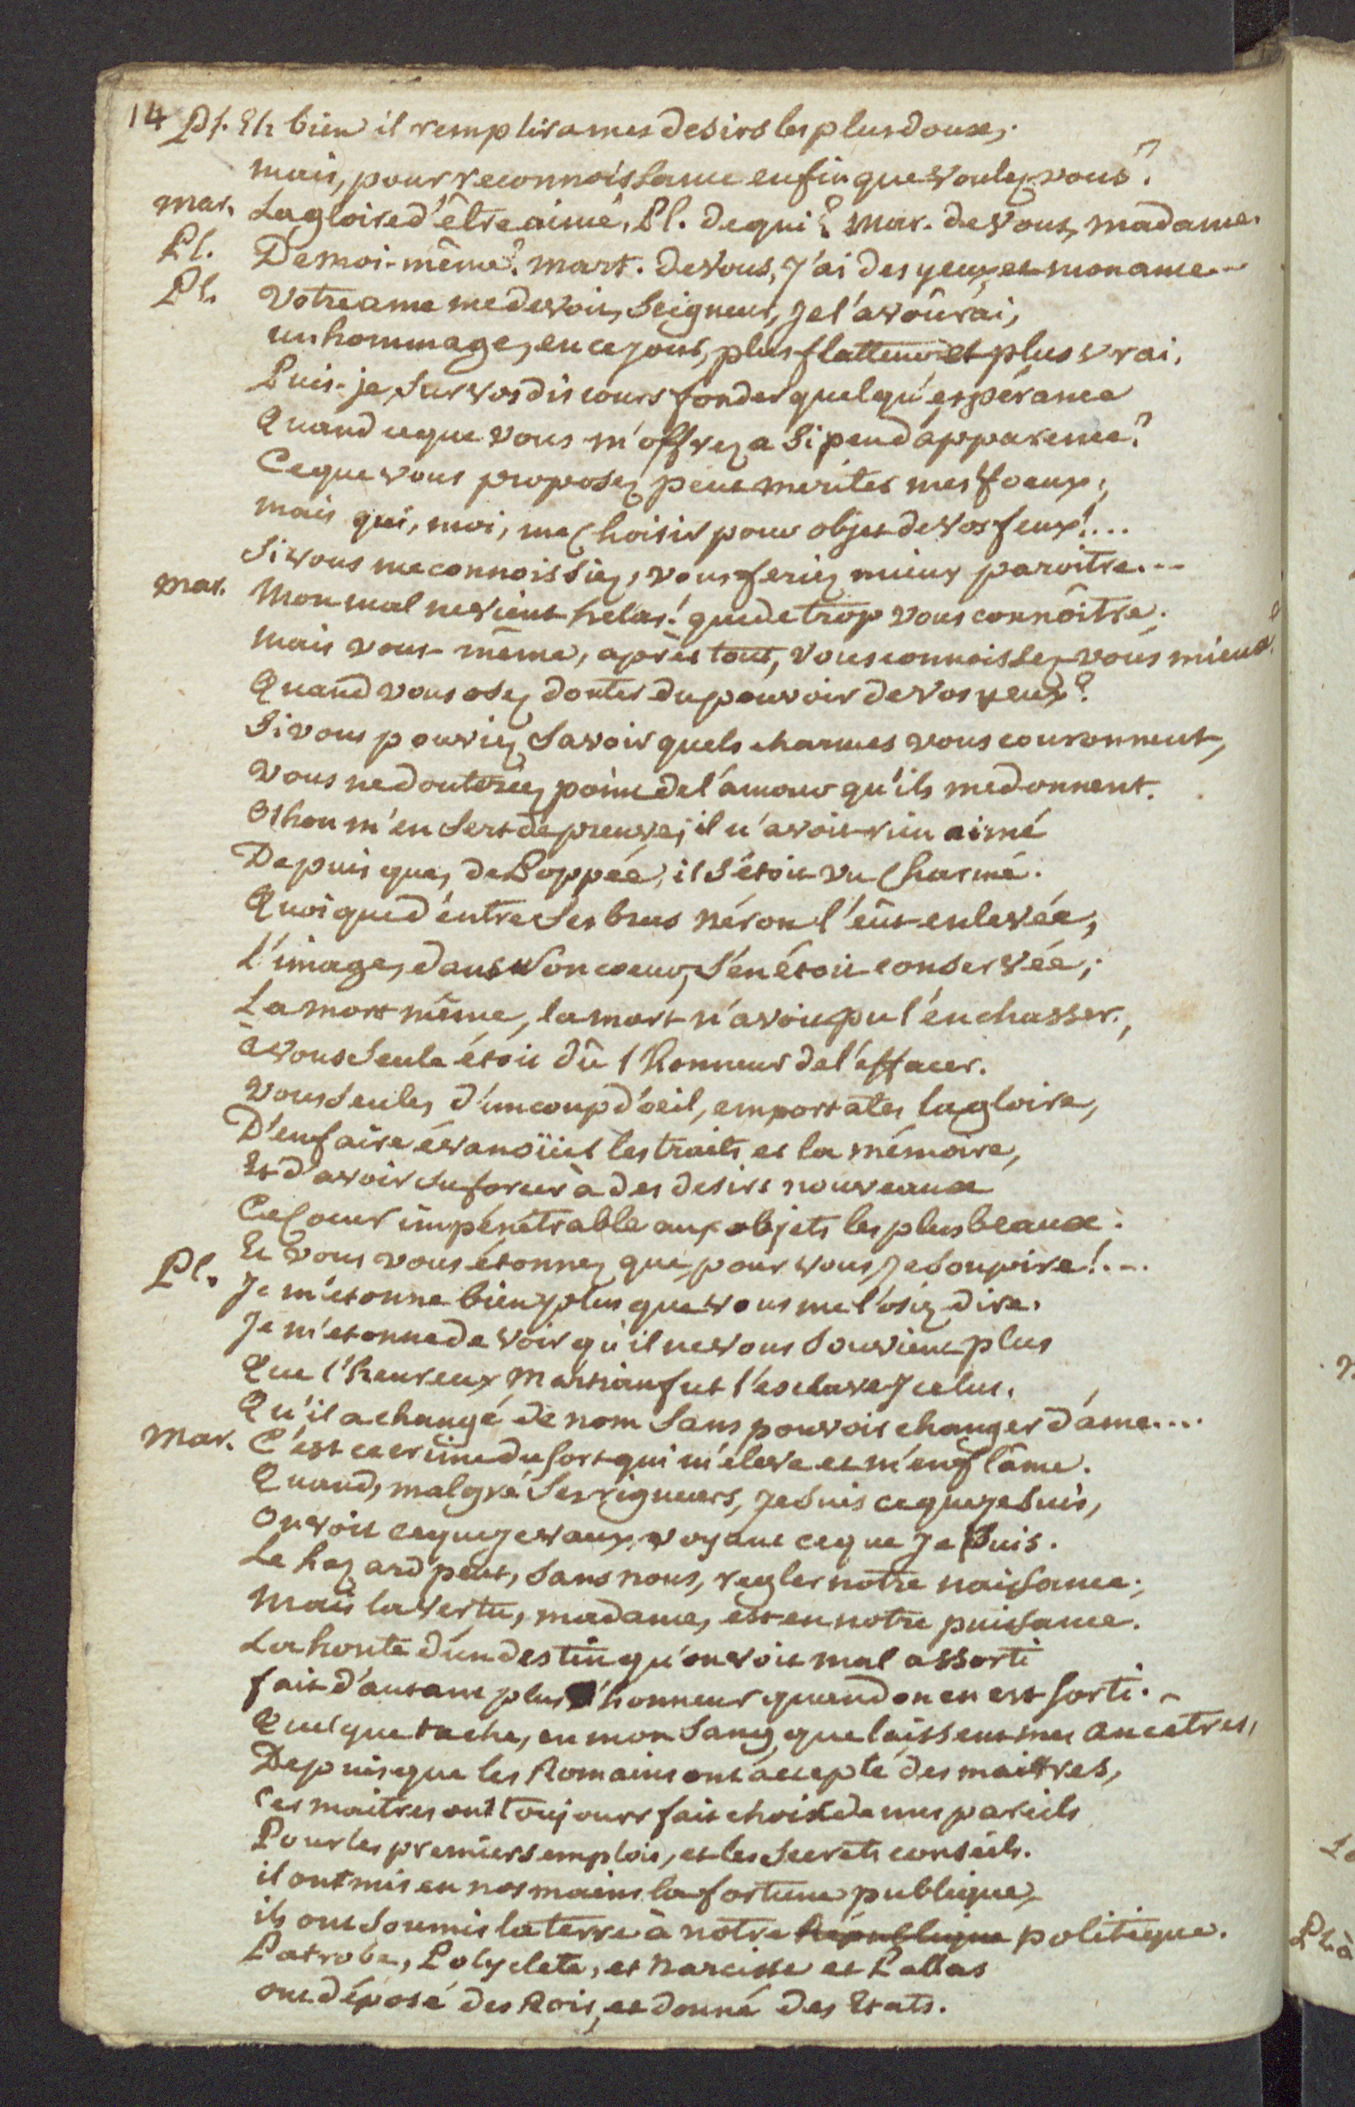 14 Pl. Eh bien il remplira mes desirs les plus doux;
mais, pour reconnoissance enfin que voulez-vous?
mar. La gloire d'être aimé. Pl. de qui? Mar. de vous, madame.
Pl. De moi-même? mart. de vous, j'ai des yeux, et mon ame...
Pl. Votre ame me devoit, Seigneur, je l'avoûrai,
un hommage, en ce jour, plus flatteur et plus vrai.
Puis-je, sur vos discours fonder quelqu'espérance
Quand ce que vous m'offrez a si peu d'apparence?
Ce que vous proposez peut meriter mes voeux;
mais qui, moi, me choisir pour objet de vos feux!...
Si vous me connoissiez, vous feriez mieux paroitre...
mar. Mon mal ne vient helas! que de trop vous connôitre.
mais vous-même, après tout, vous connoissez-vous mieux?
Quand vous osez douter du pouvoir de vos yeux?
Si vous pouviez savoir quels charmes vous couronnent,
vous ne douteriez point de l'amour qu'ils me donnent.
Othon m'en sert de preuve; il n'avoit rien aimé
Depuis que, de Poppée, il s'étoit vu charmé.
Quoique d'entre ses bras Néron l'eût enlevée,
L'image, dans son coeur, s'en étoit conservée;
La mort même, la mort n'avoit pu l'en chasser;
à vous seule étoit dû l'honneur de l'effacer.
Vous seule, d'un coup d'oeil, emportates la gloire,
D'en faire évanoüir les traits et la mémoire,
Et d'avoir su forcer à des desirs nouveaux
Ce coeur impénétrable aux objets les plus beaux.
Et vous vous étonnez que, pour vous, je soupire!...
Pl. Je m'étonne bien plus que vous me l'osiez dire.
Je m'etonne de voir qu'il ne vous souvient plus
Que l'heureux Martian fut l'esclave Icelus.
Qu'il a changé de nom sans pouvoir changer d'ame....
Mar. C'est ce crime du sort qui m'éleve et m'enflâme.
Quand, malgré ses rigueurs, je suis ce que je suis,
On voit ce que je vaux, voyant ce que je puis.
Le hazard peut, sans nous, regler notre naissance;
Mais la vertu, madame, est en notre puissance.
La honte d'un destin qu'on voit mal assorti
fait d'autant plus d'honneur quand on en est sorti.
Quelque tache, en mon sang, que laissent mes ancetres,
Depuis que les Romains ont accepté des maitres,
Ces maitres ont toujours fait choix de mes pareils
Pour les premiers emplois, et les secrets conseils.
il ont mis en nos mains la fortune publique,
ils ont soumis la terre à notre République politique.
Patrobe, Polyclete, et Narcisse et Pallas
ont déposé des Rois, et donné des Etats.